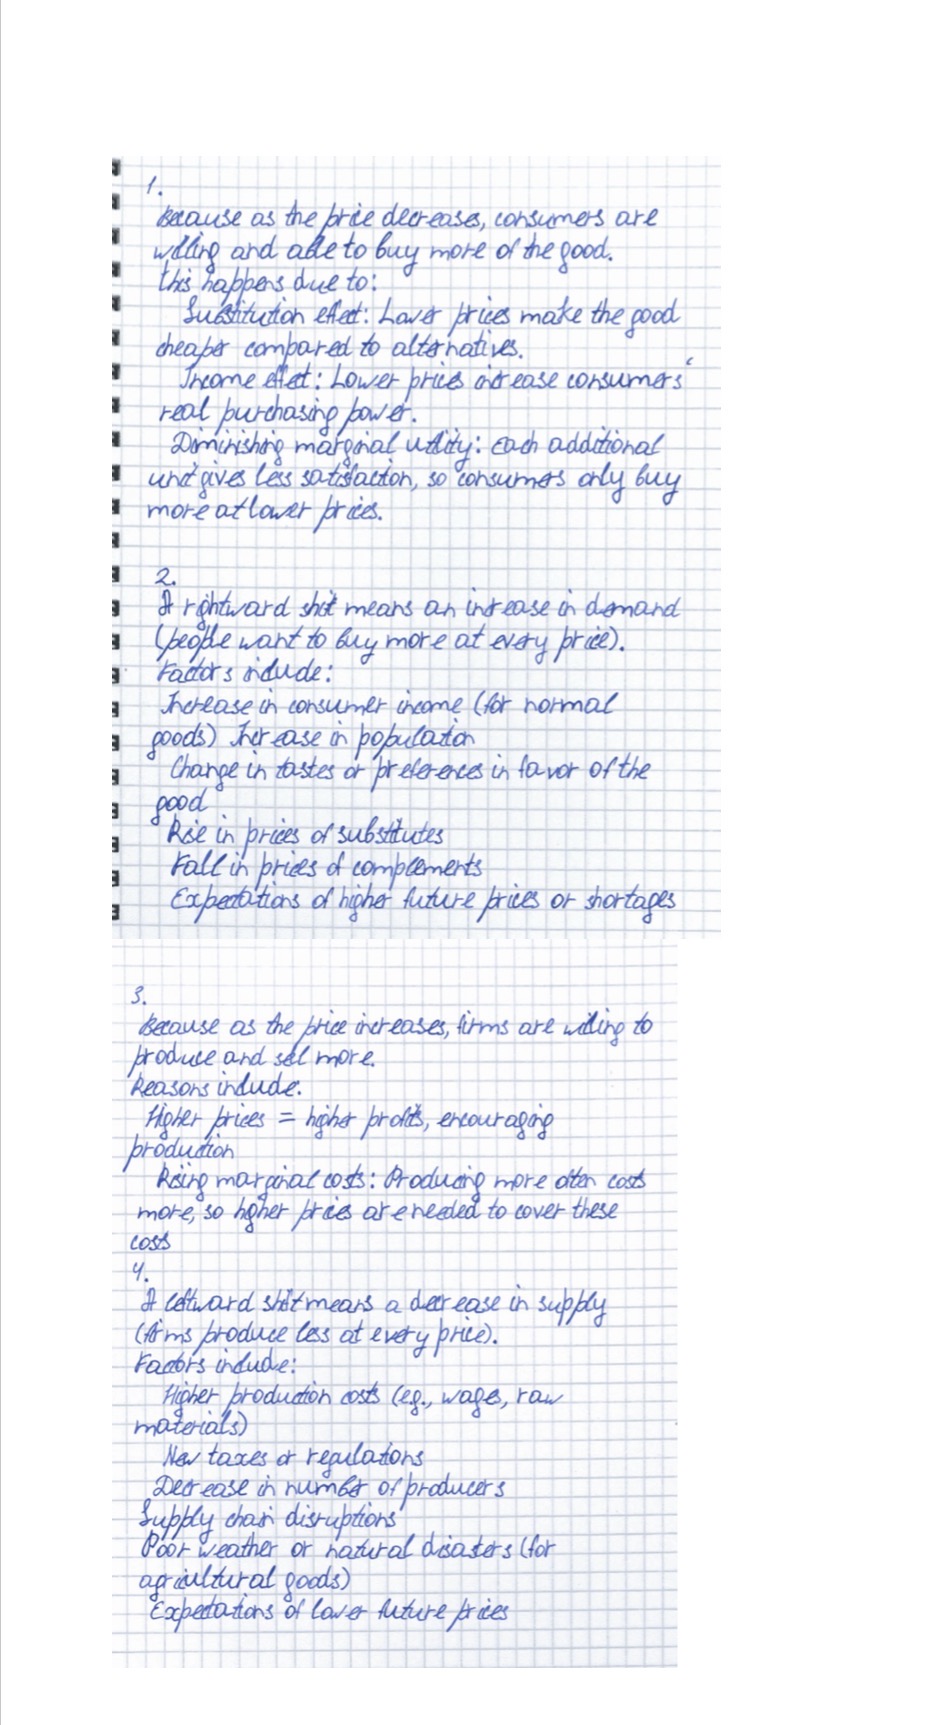 1.
Because as the price decreases, consumers are
willing and able to buy more of the good.
This happens due to:
Substitution effect: Lower prices make the good
cheaper compared to alternatives.
Income effect: Lower prices increase consumers'
real purchasing power.
Diminishing marginal utility: Each additional
unit gives less satisfaction, so consumers only buy
more at lower prices.
2.
A rightward shift means an increase in demand
(people want to buy more at every price).
Factors include:
Increase in consumer income (for normal
goods) Increase in population
Change in tastes or preferences in favor of the
good
Rise in prices of substitutes
Fall in prices of complements
Expectations of higher future prices or shortages
3.
Because as the price increases, firms are willing to
produce and sell more.
Reasons include:
Higher prices = higher profits, encouraging
production
Rising marginal costs: Producing more often costs
more, so higher prices are needed to cover these
costs
4.
A leftward shift means a decrease in supply
(firms produce less at every price).
Factors include:
Higher production costs (e.g., wages, raw
materials)
New taxes or regulations
Decrease in number of producers
Supply chain disruptions
Poor weather or natural disasters (for
agricultural goods)
Expectations of lower future prices